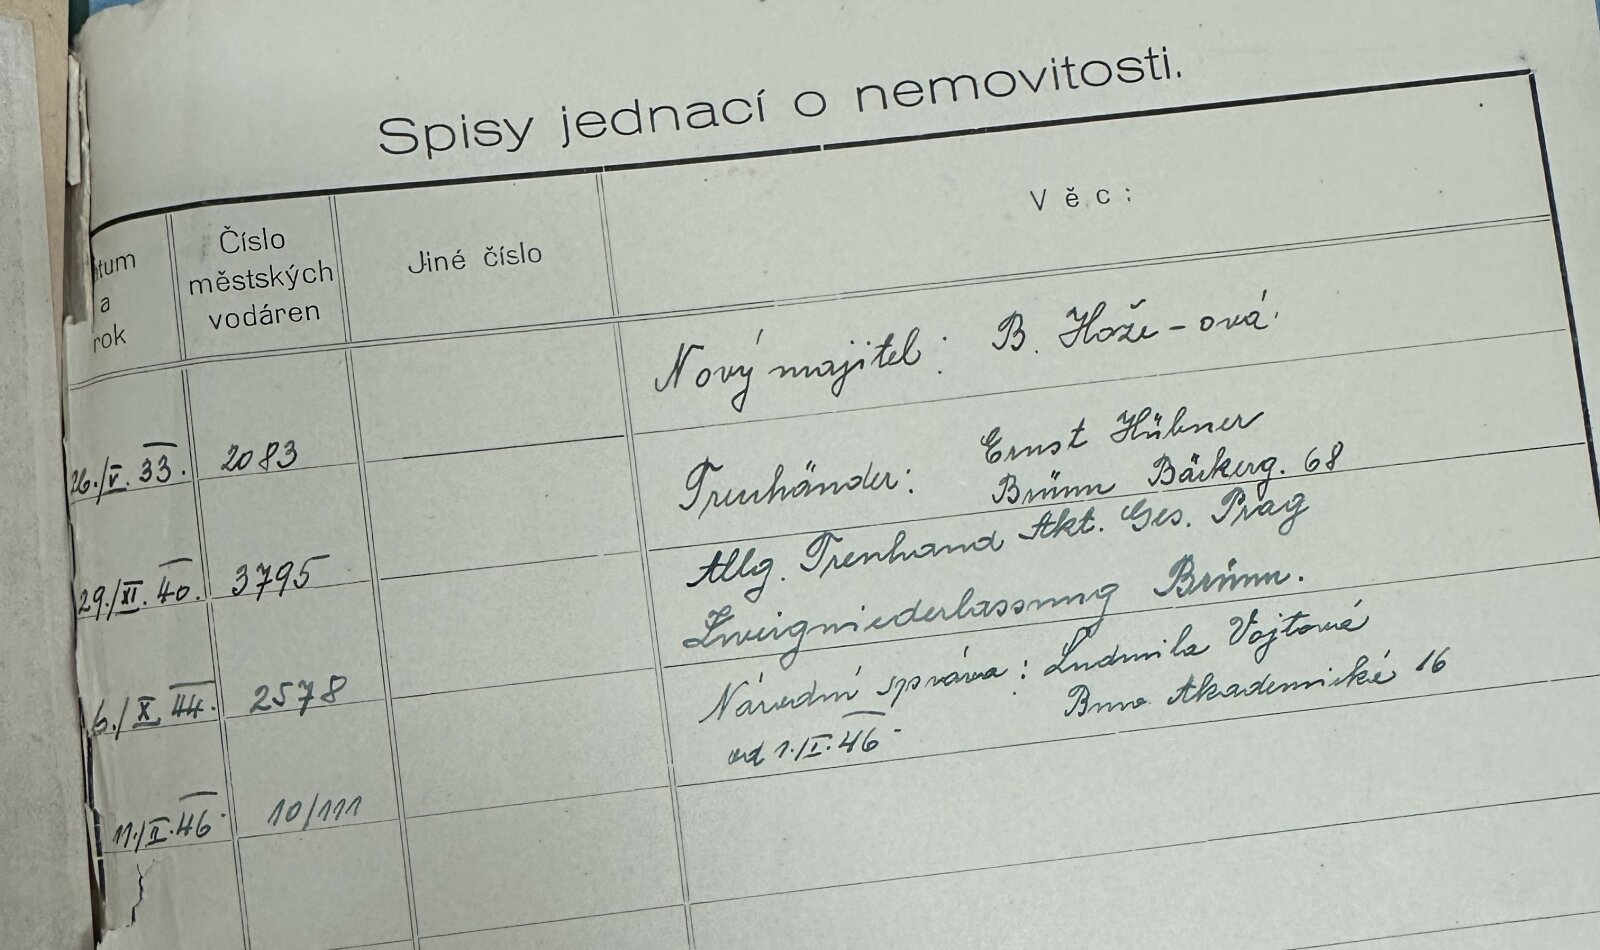 Spisy jednací o nemovitosti.
tum
a
rok
Číslo
městských
vodáren
Jiné číslo
Věc:
26./V. 33. 2083 Nový majitel: B. Hože-ová.
29./XI. 40. 3795 Treuhänder: Ernst Hübner
Brünn Bäckerg. 68
6./X. 44. 2578 Allg. Treuhand Akt. Ges. Prag
Zweigniederlassung Brünn.
11./II. 46. 10/111 Národní správa: Ludmila Vojtová
od 1./I. 46. Brno Akademické 16